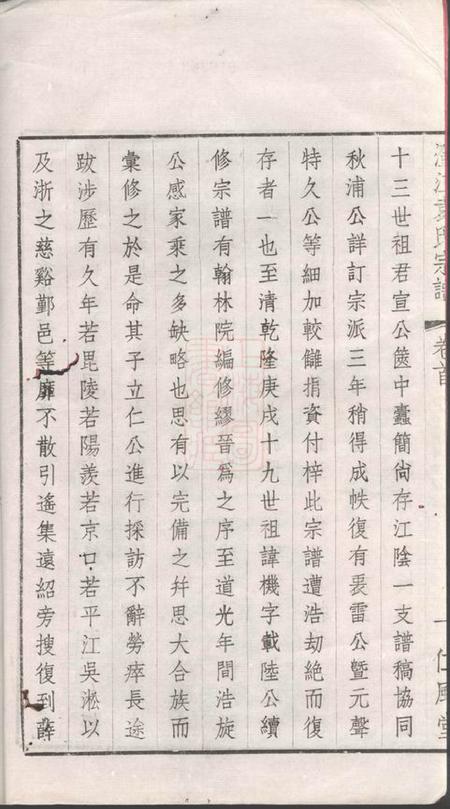 澄江袁氏宗譜 卷首 一 仁風堂
十三世祖君宣公篋中蠹簡尙存江陰一支譜稿協同
秋浦公詳訂宗派三年稍得成帙復有裴雷公曁元聲
特久公等細加較讎捐資付梓此宗譜遭浩劫絕而復
存者一也至清乾隆庚戌十九世祖諱機字載陸公續
修宗譜有翰林院編修繆晉爲之序至道光年間浩旋
公感家乘之多缺略也思有以完備之幷思大合族而
彙修之於是命其子立仁公進行採訪不辭勞瘁長途
跋涉歷有久年若毘陵若陽羨若京口若平江吳淞以
及浙之慈谿鄞邑等靡不散引遙集遠紹旁搜復到薛